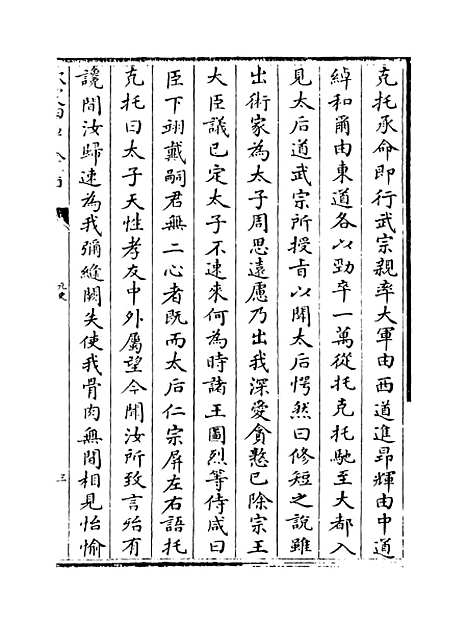 克托承命即行武宗親率大軍由西道進昂輝由中道
綽和爾由東道各以勁卒一萬從托克托馳至大都入
見太后道武宗所授旨以聞太后愕然曰修短之說雖
出術家為太子周思遠慮乃出我深愛貪憝已除宗王
大臣議已定太子不速來何為時諸王圖烈等侍咸曰
臣下翊戴嗣君無二心者既而太后仁宗屏左右語托
克托曰太子天性孝友中外屬望今聞汝所致言殆有
讒間汝歸速為我彌縫闕失使我骨肉無間相見怡愉
三